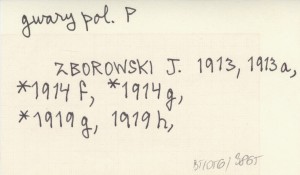 gwary pol. P
ZBOROWSKI J. 1913, 1913a,
*1914f, *1914g,
*1919g, 1919h,